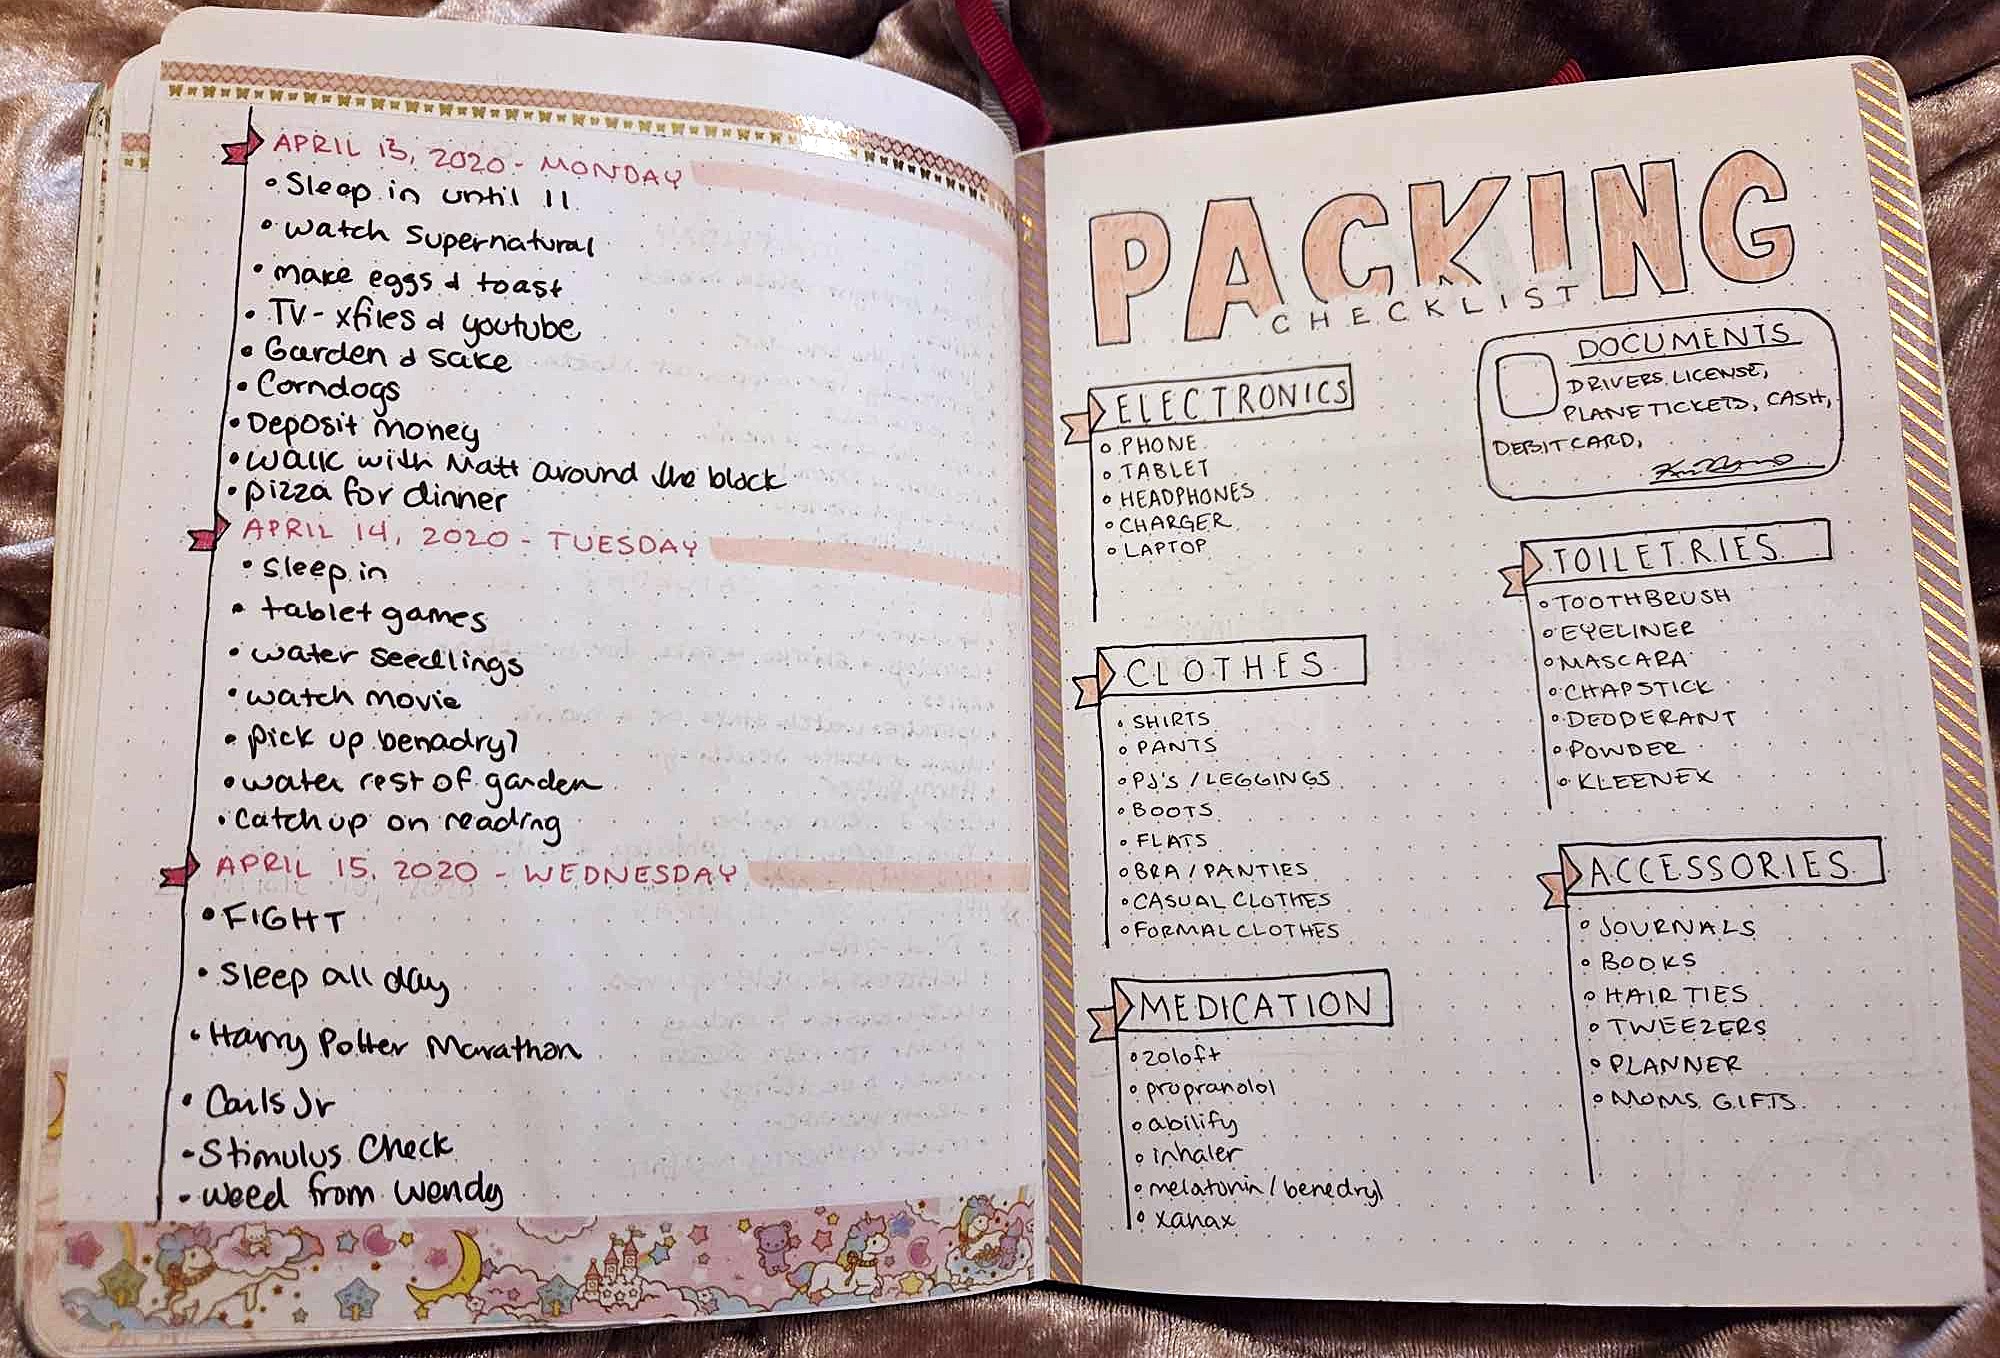 APRIL 13, 2020 - MONDAY
• Sleep in until 11
• watch supernatural
• make eggs & toast
• TV - xfiles & youtube
• Garden & sake
• Corndogs
• Deposit money
• walk with Matt around the block
• pizza for dinner
APRIL 14, 2020 - TUESDAY
• sleep in
• tablet games
• water seedlings
• watch movie
• pick up benadryl
• water rest of garden
• catch up on reading
APRIL 15, 2020 - WEDNESDAY
• FIGHT
• Sleep all day
• Harry Potter Marathon
• Carls Jr
• Stimulus Check
• weed from Wendy
PACKING
CHECKLIST
DOCUMENTS
DRIVERS LICENSE,
PLANE TICKETS, CASH,
DEBIT CARD,
ELECTRONICS
• PHONE
• TABLET
• HEADPHONES
• CHARGER
• LAPTOP
CLOTHES
• SHIRTS
• PANTS
• PJ'S / LEGGINGS
• BOOTS
• FLATS
• BRA / PANTIES
• CASUAL CLOTHES
• FORMAL CLOTHES
MEDICATION
• zoloft
• propranolol
• abilify
• inhaler
• melatonin / benedryl
• xanax
TOILETRIES
• TOOTHBRUSH
• EYELINER
• MASCARA
• CHAPSTICK
• DEODERANT
• POWDER
• KLEENEX
ACCESSORIES
• JOURNALS
• BOOKS
• HAIR TIES
• TWEEZERS
• PLANNER
• MOMS GIFTS